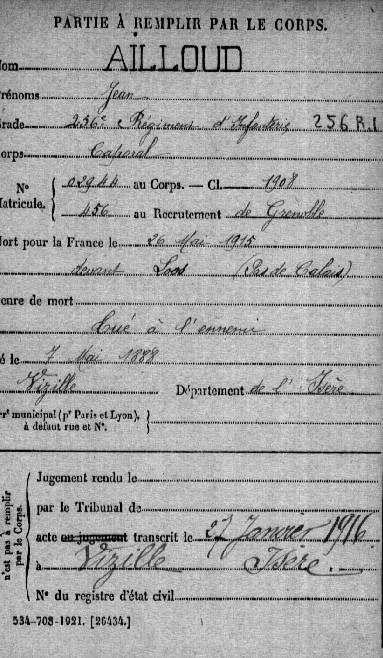 PARTIE À REMPLIR PAR LE CORPS.
AILLOUD
om
rénoms Jean
rade 256e Régiment d'Infanterie 256 R.I.
orps Caporal
N° atricule. 02944 au Corps. — Cl. 1908
456 au Recrutement de Grenoble
ort pour la France le 26 Mai 1915
devant Loos (Pas de Calais)
enre de mort
Tué à l'ennemi
é le 7 Mai 1888
Vizille Département de l'Isère
rt municipal (pr Paris et Lyon), à défaut rue et N°.
n'est pas à remplir par le Corps.
Jugement rendu le
par le Tribunal de
acte ou jugement transcrit le 27 Janvier 1916
à Vizille Isère.
N° du registre d'état civil
534-708-1921. [26434.]